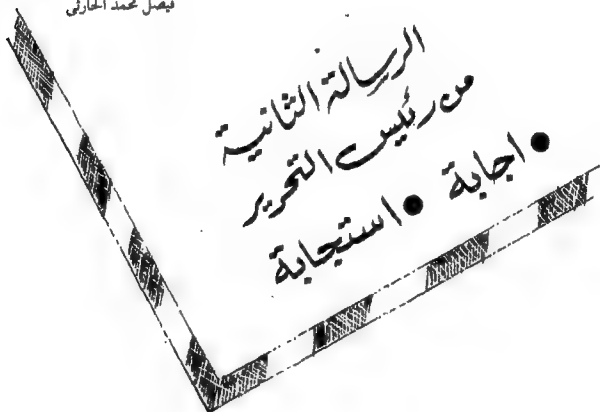 فيصل محمد الحارثى
الرسالة الثانية
من رئيس التحرير
● اجابة ● استجابة